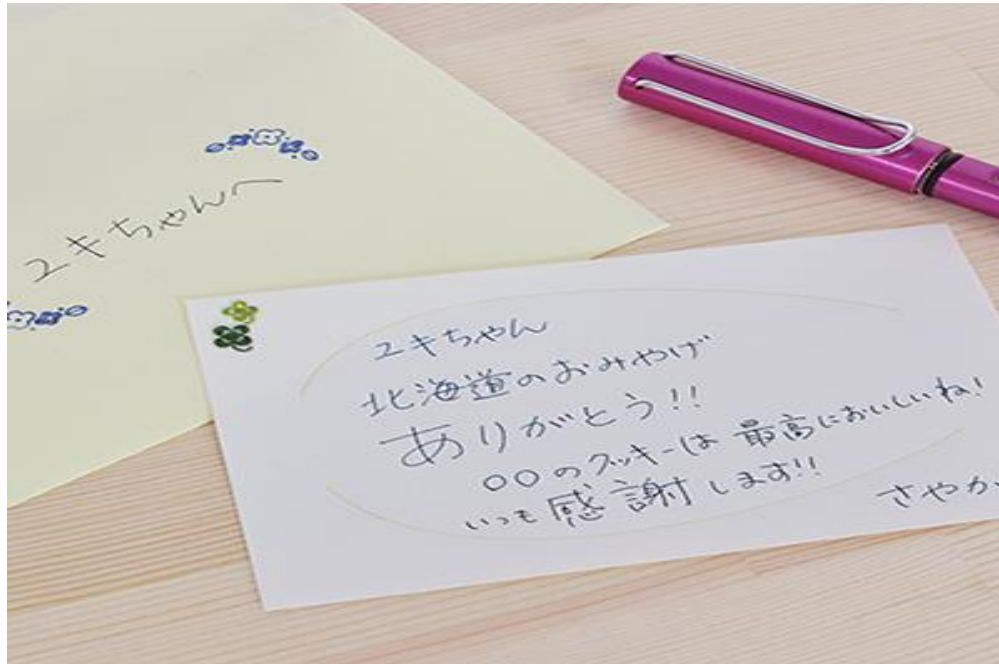 ユキちゃんへ
ユキちゃん
北海道のおみやげ
ありがとう!!
〇〇のクッキーは最高においしいね!
いつも感謝します!!
さやか